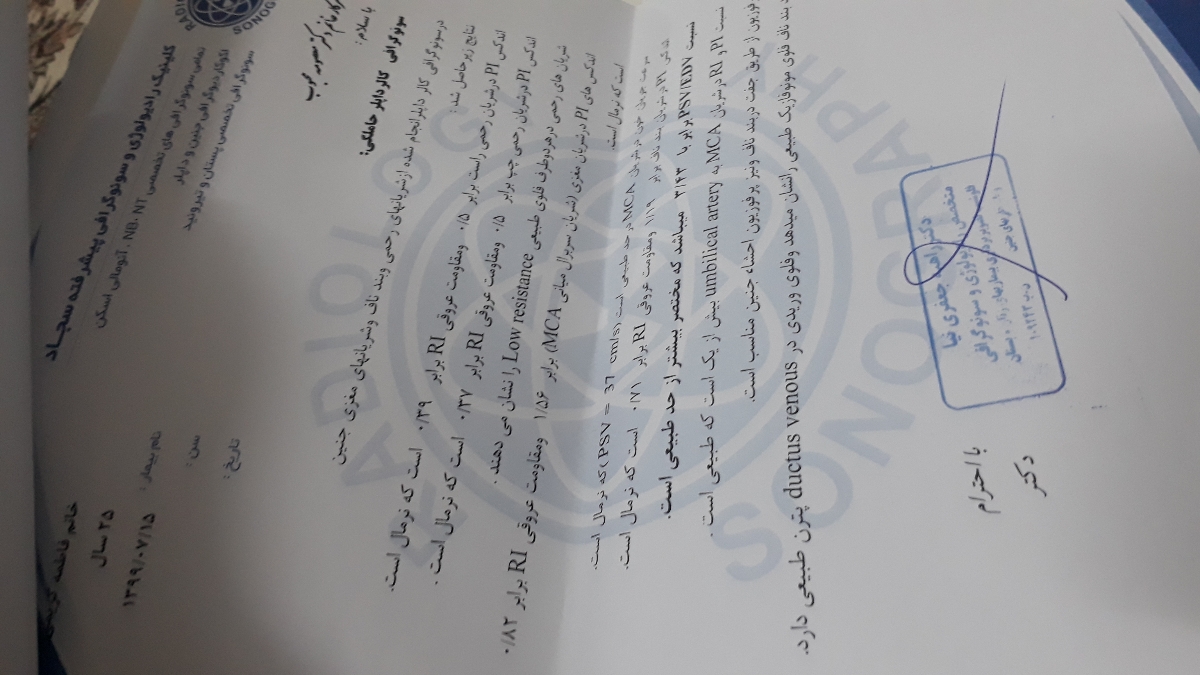 کلینیک رادیولوژی و سونوگرافی پیشرفته سجاد
تمامی سونوگرافی های تخصصی NB، NT، آنومالی اسکن
اکوکاردیوگرافی جنین و داپلر
سونوگرافی تخصصی پستان و تیروئید
خانم فاطمه
نام بیمار :
سن : ۲۵ سال
تاریخ : ۱۳۹۹/۰۷/۱۵
با سلام :
سونوگرافی کالر داپلر حاملگی:
درسونوگرافی کالر داپلر انجام شده ازشریانهای رحمی وبند ناف وشریانهای مغزی جنین
نتایج زیر حاصل شد:
اندکس PI درشریان رحمی راست برابر ۰/۵ ومقاومت عروقی RI برابر ۰/۳۹ است که نرمال است.
اندکس PI درشریان رحمی چپ برابر ۰/۵ ومقاومت عروقی RI برابر ۰/۳۷ است که نرمال است .
شریان های رحمی درهردوطرف فلوی طبیعی Low resistance را نشان می دهند .
اندکس های PI درشریان مغزی (شریان سربرال میانی MCA) برابر ۱/۵۶ ومقاومت عروقی RI برابر ۰/۸۲
است که نرمال است.
سرعت جریان خون در شریان MCA درحد طبیعی است (PSV = 37 cm/s) که نرمال است.
اندکس PI درشریان بند ناف برابر ۱/۱۹ ومقاومت عروقی RI برابر ۰/۷۱ است که نرمال است.
نسبت PSV/EDV برابر با ۳/۴۳ میباشد که مختصر بیشتر از حد طبیعی است.
نسبت PI و RI درشریان MCA به umbilical artery بیش از یک است که طبیعی است .
پرفوزیون از طریق جفت دربند ناف ونیز پرفوزیون احشاء جنین مناسب است.
بند ناف فلوی مونوفازیک طبیعی رانشان میدهد وفلوی وریدی در ductus venous پترن طبیعی دارد.
با احترام
دکتر
جعفری نیا
متخصص رادیولوژی و سونوگرافی
RADIOLOGY
SONOGRAPHY